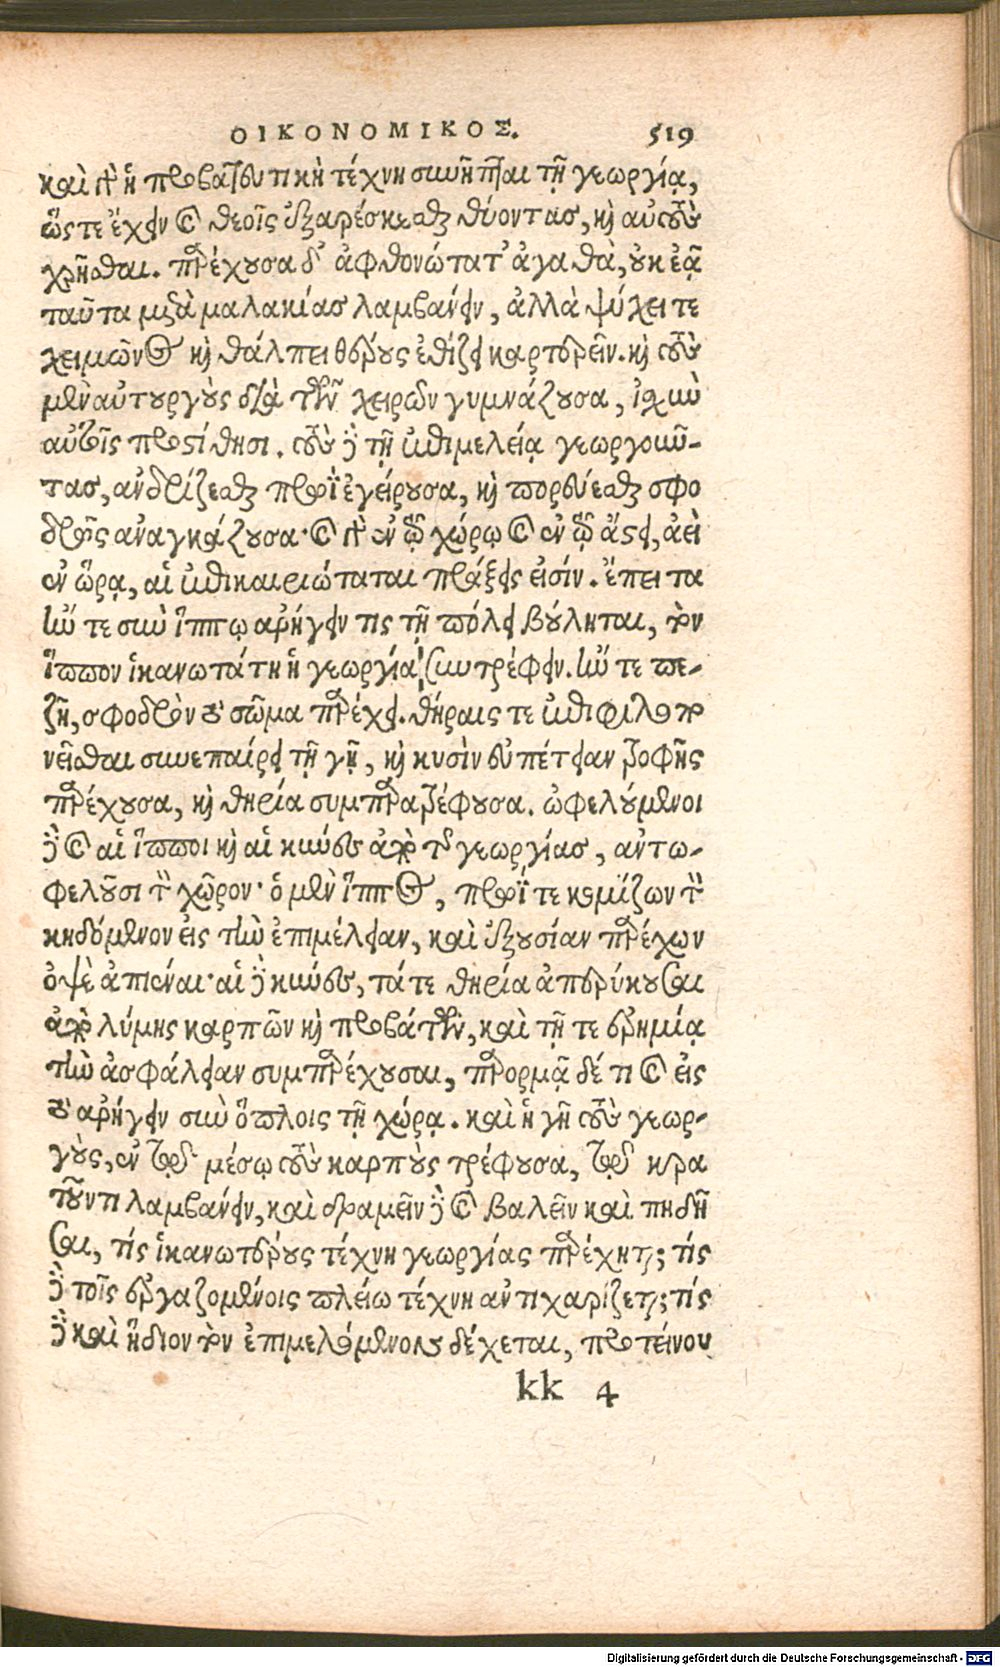 ΟΙΚΟΝΟΜΙΚΟΣ. 519
καὶ γὰρ ἡ προβατευτικὴ τέχνη συνῆπται τῇ γεωργίᾳ,
ὥςτε ἔχειν καὶ θεοῖς ἐξαρέσκεσθαι θύοντας, καὶ αὐτοὺς
χρῆσθαι. παρέχουσα δ᾽ ἀφθονώτατ᾽ ἀγαθὰ, οὐκ ἐᾷ
ταῦτα μετὰ μαλακίας λαμβάνειν, ἀλλὰ ψύχει τε
χειμῶνος καὶ θάλπει θέρους ἐθίζει καρτερεῖν. καὶ τοὺς
μὲν αὐτουργοὺς διὰ τῶν χειρῶν γυμνάζουσα, ἰσχὺν
αὐτοῖς προστίθησι. τοὺς δὲ τῇ ἐπιμελείᾳ γεωργοῦν-
τας, ἀνδρίζεσθαι πρωῒ ἐγείρουσα, καὶ πορεύεσθαι σφο
δρῶς ἀναγκάζουσα· καὶ γὰρ ἐν τῷ χώρῳ καὶ ἐν τῷ ἄστει, ἀεὶ
ἐν ὥρᾳ, αἱ ἐπικαιριώταται πράξεις εἰσίν. ἔπειτα
ἤν τε σὺν ἵππῳ ἀρήγειν τις τῇ πόλει βούληται, τὸν
ἵππον ἱκανωτάτη ἡ γεωργία συντρέφειν. ἤν τε πε-
ζῇ, σφοδρὸν τὸ σῶμα παρέχει. θήραις τε ἐπιφιλοπο
νεῖσθαι συνεπαίρει τῇ γῇ, καὶ κυσὶν εὐπέτειαν τροφῆς
παρέχουσα, καὶ θηρία συμπαρατρέφουσα. ὠφελούμενοι
δὲ καὶ αἱ ἵπποι καὶ αἱ κύνες ἀπὸ τῆς γεωργίας, ἀντω-
φελοῦσι τὸν χῶρον· ὁ μὲν ἵππος, πρωΐ τε κομίζων τὸν
κηδόμενον εἰς τὴν ἐπιμέλειαν, καὶ ἐξουσίαν παρέχων
ὀψὲ ἀπιέναι· αἱ δὲ κύνες, τά τε θηρία ἀπερύκουσαι
ἀπὸ λύμης καρπῶν καὶ προβάτων, καὶ τῇ τε ἐρημίᾳ
τὴν ἀσφάλειαν συμπαρέχουσαι, παρορμᾷ δέ τι καὶ εἰς
τὸ ἀρήγειν σὺν ὅπλοις τῇ χώρᾳ. καὶ ἡ γῆ τοὺς γεωρ-
γοὺς, ἐν τῷ μέσῳ τοὺς καρποὺς τρέφουσα, τῷ κρα
τοῦντι λαμβάνειν, καὶ δραμεῖν δὲ καὶ βαλεῖν καὶ πηδῆ
σαι, τίς ἱκανωτέρους τέχνη γεωργίας παρέχηται; τίς
δὲ τοῖς ἐργαζομένοις πλείω τέχνη ἀντιχαρίζεται; τίς
δὲ καὶ ἥδιον τὸν ἐπιμελόμενον δέχεται, προτείνου
kk 4
Digitalisierung gefördert durch die Deutsche Forschungsgemeinschaft - DFG